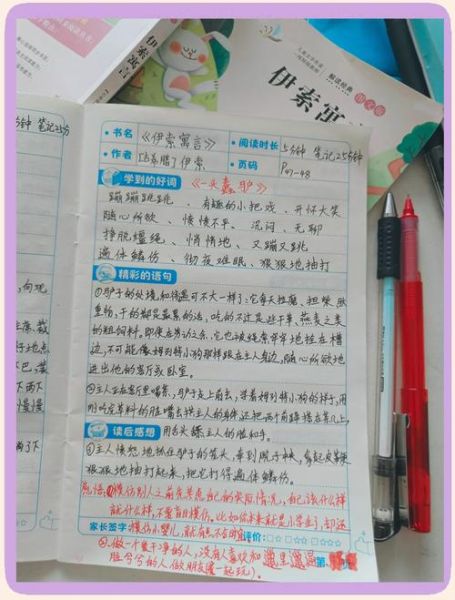 伊索寓言
伊索寓
书名
《伊索寓言》
阅读时长
5分钟 笔记25分钟
作者
古希腊 伊索
页码
P47-48
学到的好词
《一头蠢驴》
蹦蹦跳跳、有趣的小把戏、开怀大笑
随心所欲、愤愤不平、沉闷、无聊
挣脱缰绳、悄悄地、又蹦又跳
遍体鳞伤、彻夜难眠、狠狠地抽打
精彩的语句
①驴子的处境和待遇可不大一样:它每天拉磨、担柴、驮
重物,干的都是最累的活,吃的不过是些干草、燕麦之类
的粗饲料。即使在劳动之余,它也被缰绳牢牢地拴在槽
边,不可能像姆特小狗那样跟在主人身边,随心所欲地
进出他的客厅或卧室。
②主人正在客厅里喝茶,驴子走上前去,学着姆特小狗的样子,用
刚吃完草料的脏嘴去拱主人的身体,还把两个前蹄搭在茶几上,
读后感想
用舌头舔主人的脸和手。
③主人愤怒地抓住驴子的笼头,牵到院子中央,拿起皮鞭
狠狠地抽打起来,把它打得遍体鳞伤。
感悟:①模仿别人之前先考虑自己的实际情况,自己该什么样
就什么样,不盲目模仿。比如你本来就是小学生了,却还
家长签字:
模仿小婴儿,就有点不合时宜
评价:
②做一个爱干净的人,没有人喜欢和邋里邋遢
第
脏兮兮的人做朋友(还一起玩)。